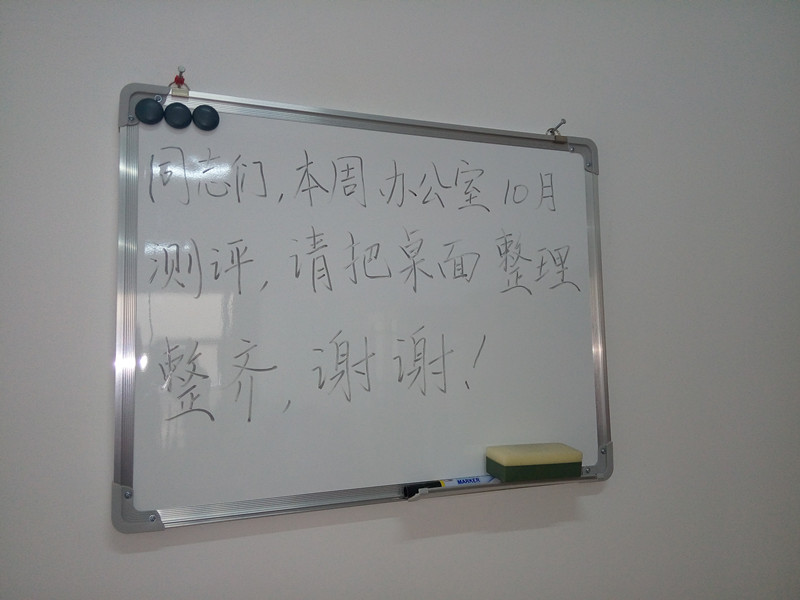 同志们,本周办公室10月
测评,请把桌面整理
整齐,谢谢!
MARKER